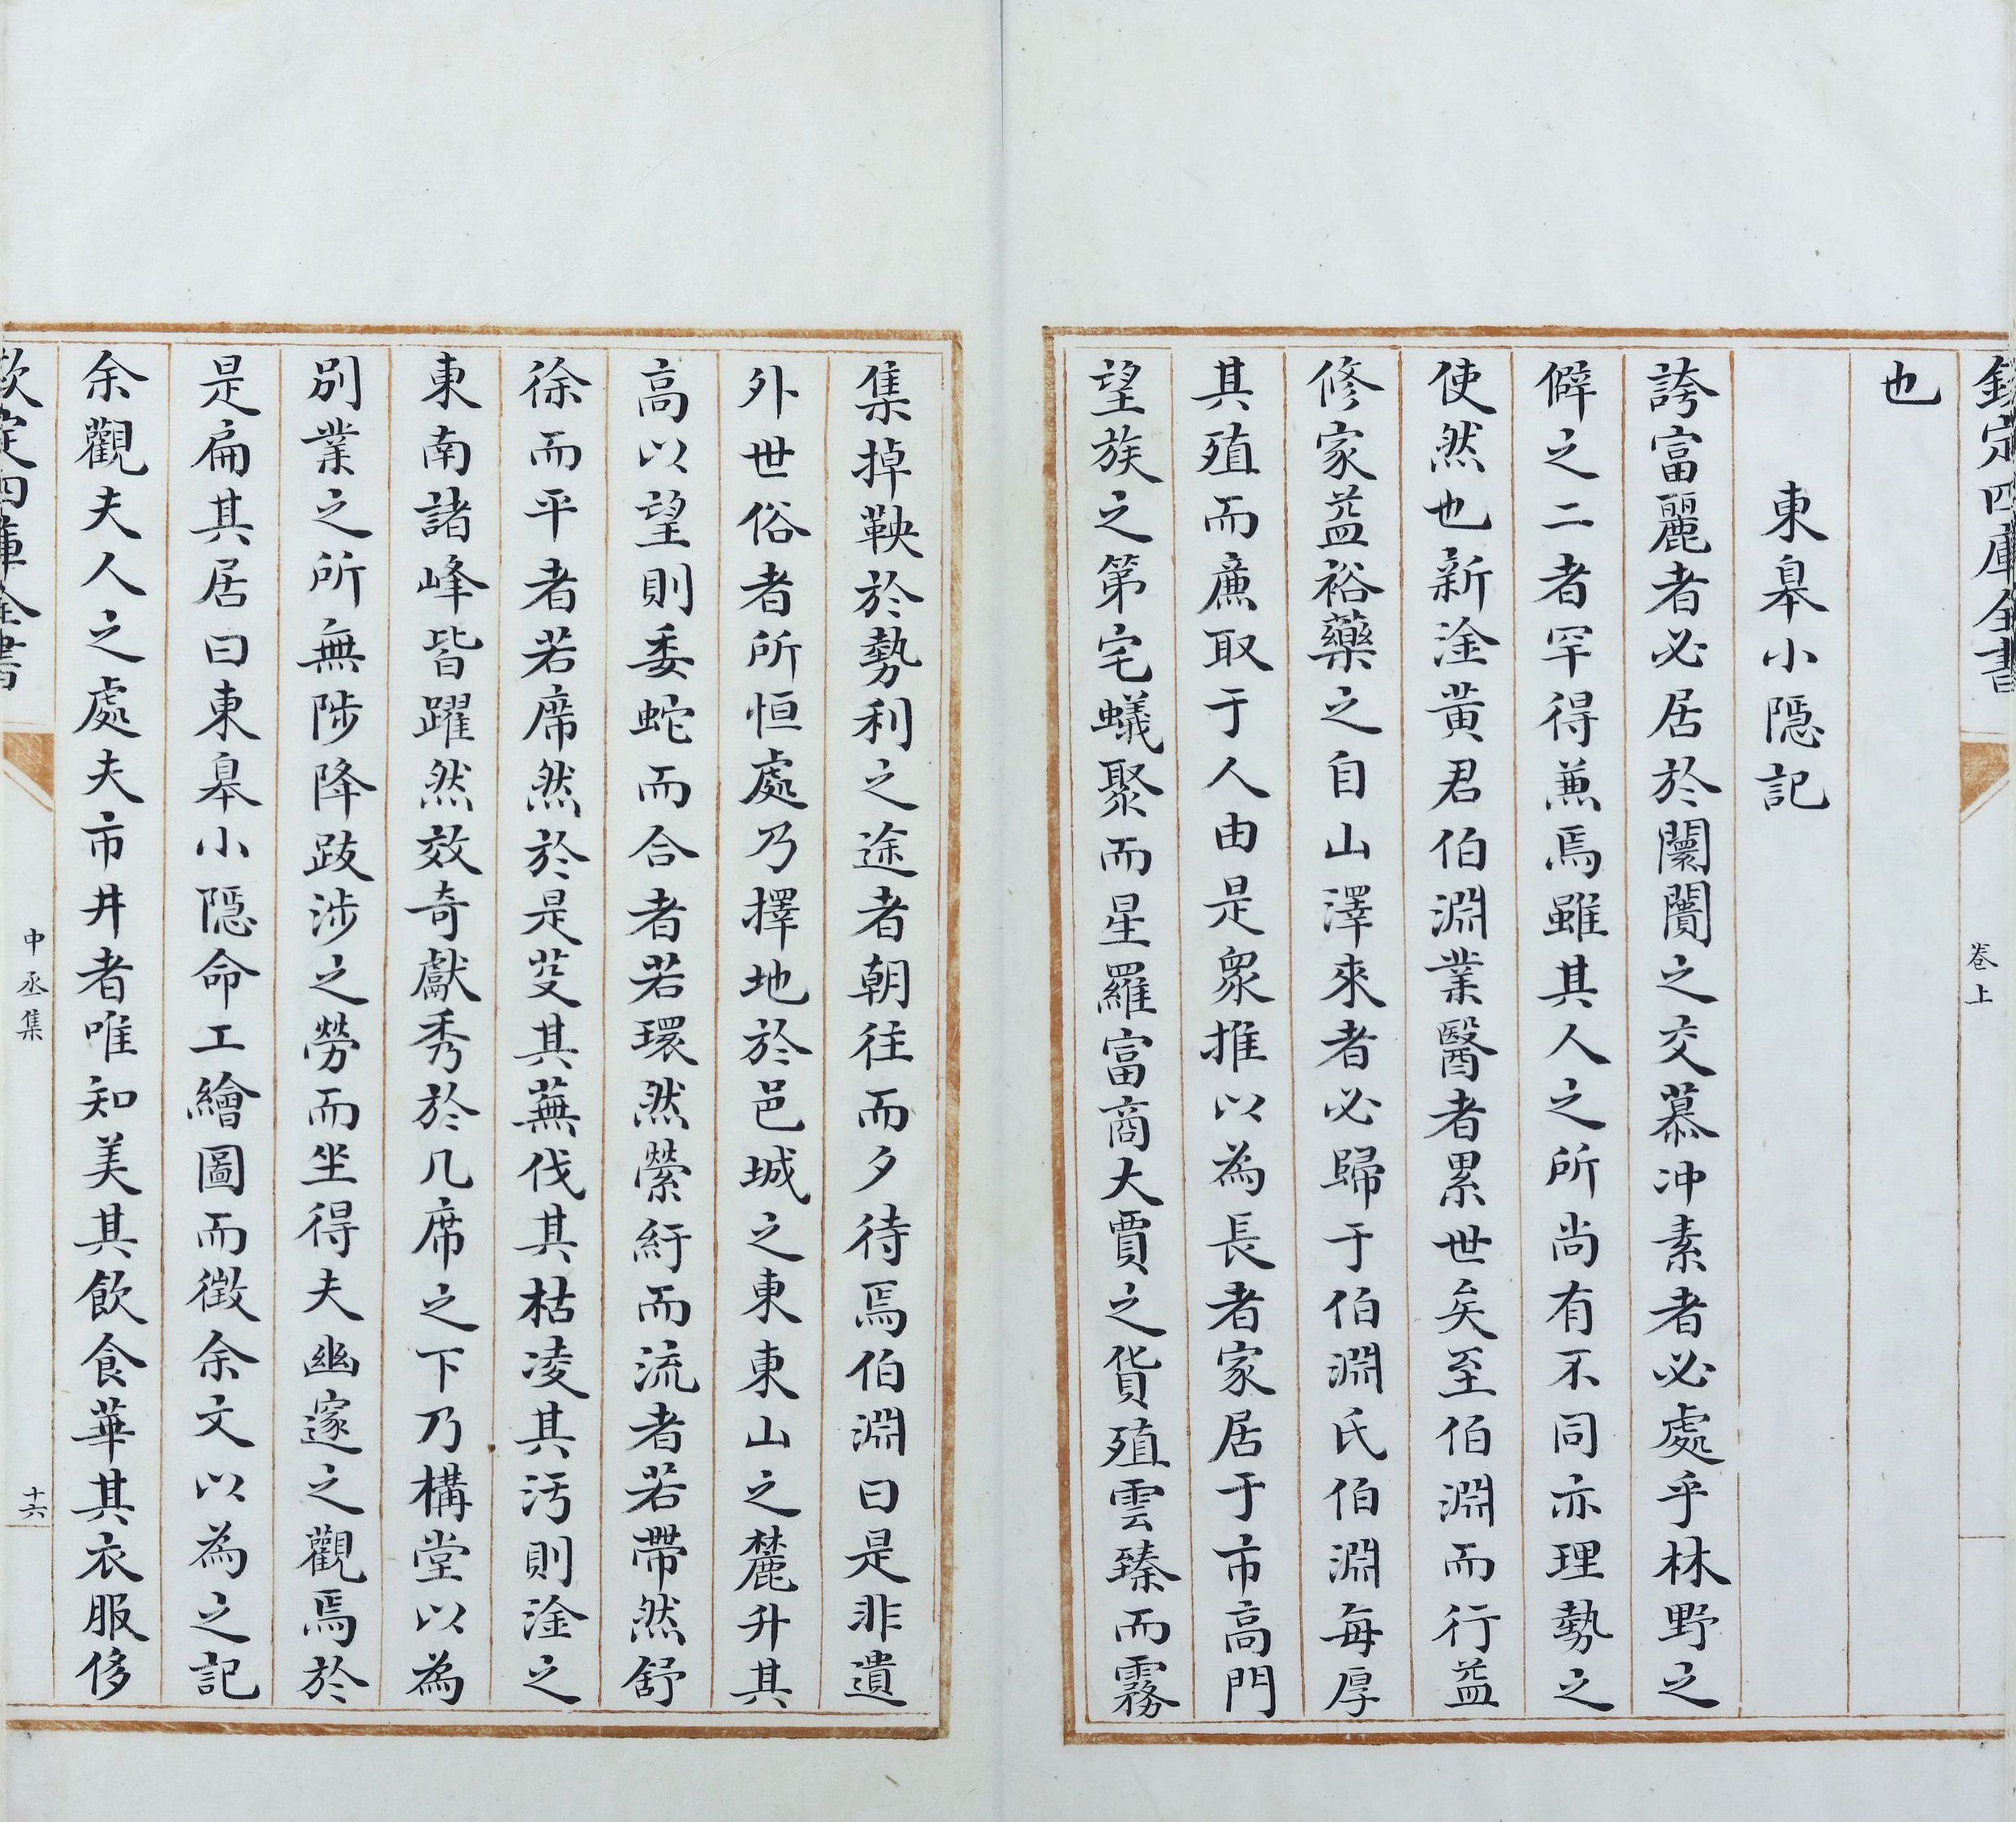 欽定四庫全書
卷上
也
東臯小隱記
誇富麗者必居於闤闠之交慕冲素者必處乎林野之
僻之二者罕得兼焉雖其人之所尚有不同亦理勢之
使然也新淦黄君伯淵業醫者累世矣至伯淵而行益
修家益裕藥之自山澤來者必歸于伯淵氏伯淵每厚
其殖而廉取于人由是衆推以為長者家居于市髙門
望族之第宅蟻聚而星羅富商大賈之貨殖雲臻而霧
集掉鞅於勢利之途者朝往而夕待焉伯淵曰是非遺
外世俗者所恒處乃擇地於邑城之東東山之麓升其
高以望則委蛇而合者若環然縈紆而流者若帶然舒
徐而平者若席然於是芟其蕪伐其枯凌其汚則淦之
東南諸峰皆躍然效奇獻秀於几席之下乃構堂以為
别業之所無陟降跋涉之勞而坐得夫幽邃之觀焉於
是扁其居曰東臯小隱命工繪圖而徴余文以為之記
余觀夫人之處夫市井者唯知美其飲食華其衣服侈
欽定四庫全書
中丞集
十六